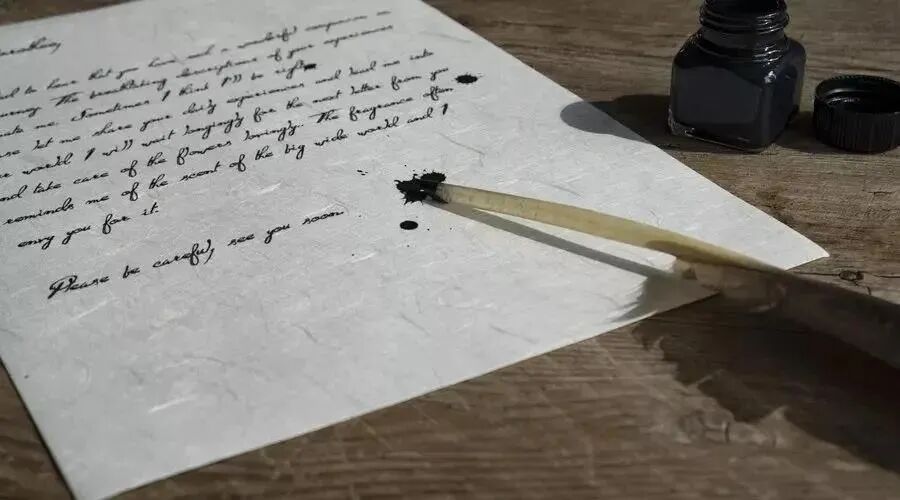 to hear that you have such a wonderful companion on
The breathtaking descriptions of your experiences
me. Sometimes I think I'll be
let me share your daily experiences and
world I will wait longingly for the next letter from you
and take care of the flowers lovingly. The fragrance often
reminds me of the scent of the big wide world and I
envy you for it.
Please be careful, see you soon